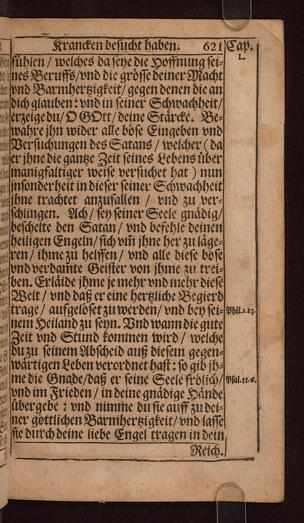 Krancken besucht haben. 621 Cap.
L.
fühlen / welches da seye die Hoffnung sei-
nes Beruffs/vnd die grösse deiner Macht
vnd Barmhertzigkeit/ gegen denen die an
dich glauben: vnd in seiner Schwachheit/
erzeige du/O GOtt/ deine Stärcke. Be-
wahre jhn wider alle böse Eingeben vnd
Versuchungen des Satans/ welcher (da
er jhne die gantze Zeit seines Lebens über
manigfaltiger weise versuchet hat) nun
insonderheit in dieser seiner Schwachheit
jhne trachtet anzufallen / vnd zu ver-
schlingen. Ach/ sey seiner Seele gnädig/
beschelte den Satan/ vnd befehle deinen
heiligen Engeln/ sich vm jhne her zu läge-
ren/ jhme zu helffen/ vnd alle diese böse
vnd verdamte Geister von jhme zu trei-
ben. Erläide jhme je mehr vnd mehr diese
Welt / vnd daß er eine hertzliche Begierd
trage/ auffgelöset zu werden/ vnd bey sei- Phil.1.23.
nem Heiland zu seyn. Vnd wann die gute
Zeit vnd Stund kommen wird / welche
du zu seinem Abscheid auß diesem gegen-
wärtigen Leben verordnet hast: so gib jh-
me die Gnade/daß er seine Seele frölich/
vnd im Frieden/ in deine gnädige Hände
übergebe: vnd nimme du sie auff zu dei-
ner göttlichen Barmhertzigkeit/ vnd lasse
sie durch deine liebe Engel tragen in dein
Reich.